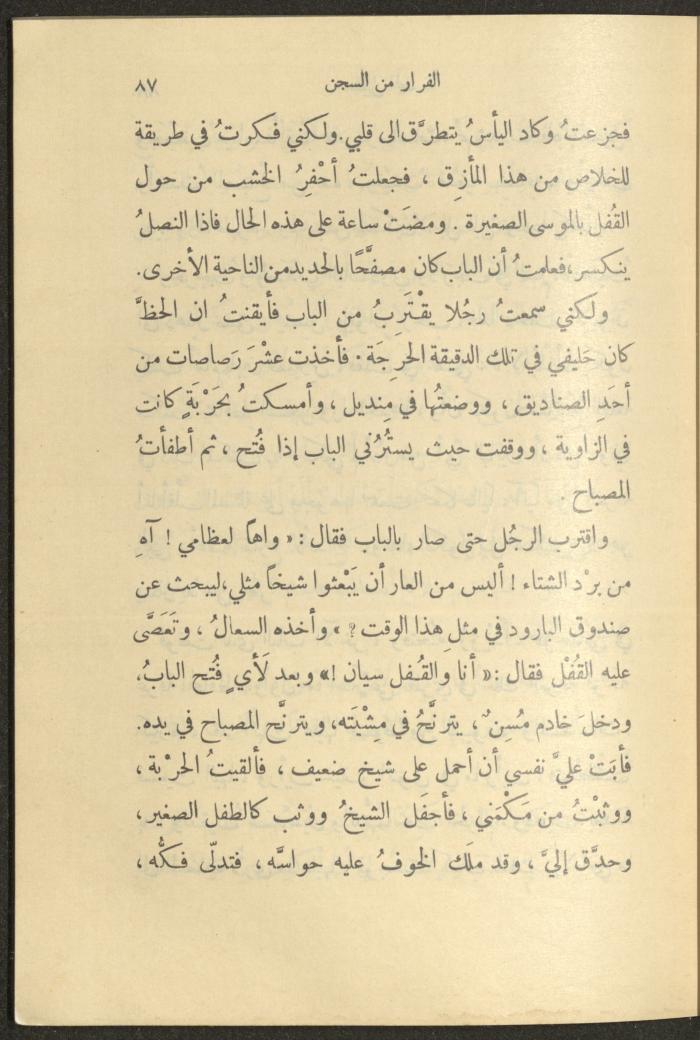 الفرار من السجن ٨٧
فجزعتُ وكاد اليأسُ يتطرَّق الى قلبي. ولكني فكرتُ في طريقة
للخلاص من هذا المأزِق ، فجعلتُ أحْفِرُ الخشب من حول
القُفل بالموسى الصغيرة . ومضَتْ ساعة على هذه الحال فاذا النصلُ
ينكسر ، فعلمتُ أن الباب كان مصفَّحًا بالحديد من الناحية الأخرى.
ولكني سمعتُ رجُلا يقْتَرِبُ من الباب فأيقنتُ ان الحظَّ
كان حَليفي في تلك الدقيقة الحرِجَة . فأخذت عشْرَ رَصاصات من
أحَدِ الصناديق ، ووضعتُها في مِنديل ، وأمسكتُ بحَرْبَةٍ كانت
في الزاوية ، ووقفت حيث يستُرُني الباب إذا فُتح ، ثم أطفأتُ
المصباح .
واقترب الرجُل حتى صار بالباب فقال : « واهاً لعظامي ! آهِ
من برْد الشتاء ! أليس من العار أن يَبْعثوا شيخاً مثلي ، ليبحث عن
صندوق البارود في مثلِ هذا الوقت ? » وأخذه السعالُ ، وتَعَصَّى
عليه القُفْل فقال : « أنا والقُفل سيان ! » وبعد لَأْيٍ فُتح البابُ ،
ودخلَ خادم مُسِنٌ ، يترنَّحُ في مِشْيَته ، ويترنَّح المصباح في يده .
فأبَتْ عليَّ نفسي أن أحمل على شيخ ضعيف ، فألقيتُ الحرْبة ،
ووثبْتُ من مَكْمَني ، فأجفَل الشيخُ ووثب كالطفل الصغير ،
وحدَّق إليَّ ، وقد ملَك الخوفُ عليه حواسَّه ، فتدلّى فكُّه ،